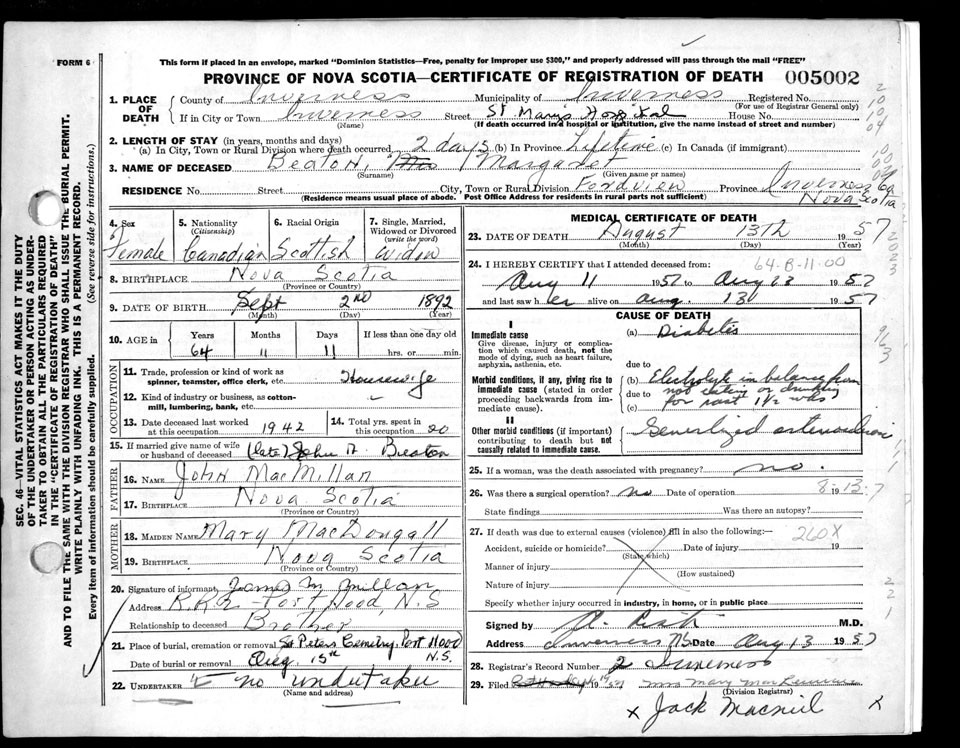 FORM 6
This form if placed in an envelope, marked "Dominion Statistics—Free, penalty for improper use $300," and properly addressed will pass through the mail "FREE"
PROVINCE OF NOVA SCOTIA—CERTIFICATE OF REGISTRATION OF DEATH 005002
1. PLACE OF DEATH County of Inverness Municipality of Inverness Registered No.
(For use of Registrar General only)
If in City or Town Inverness Street St Marys Hospital House No.
(Name) (If death occurred in a hospital or institution, give the name instead of street and number)
2. LENGTH OF STAY (in years, months and days)
(a) In City, Town or Rural Division where death occurred 2 days (b) In Province Lifetime (c) In Canada (if immigrant)
3. NAME OF DECEASED Beaton, Mrs Margaret
(Surname) (Given name or names)
RESIDENCE No. Street City, Town or Rural Division Fordview Province Inverness Co Nova Scotia
(Residence means usual place of abode. Post Office Address for residents in rural parts not sufficient)
4. Sex Female
5. Nationality (Citizenship) Canadian
6. Racial Origin Scottish
7. Single, Married, Widowed or Divorced (write the word) Widow
8. BIRTHPLACE Nova Scotia
(Province or Country)
9. DATE OF BIRTH Sept 2nd 1892
(Month) (Day) (Year)
10. AGE in Years 64 Months 11 Days 11 If less than one day old hrs. or min.
OCCUPATION
11. Trade, profession or kind of work as spinner, teamster, office clerk, etc. Housewife
12. Kind of industry or business, as cotton-mill, lumbering, bank, etc.
13. Date deceased last worked at this occupation 1942
14. Total yrs. spent in this occupation 20
15. If married give name of wife or husband of deceased (late) John A. Beaton
FATHER
16. NAME John MacMillan
17. BIRTHPLACE Nova Scotia
(Province or Country)
MOTHER
18. MAIDEN NAME Mary MacDougall
19. BIRTHPLACE Nova Scotia
(Province or Country)
20. Signature of informant James McMillan
Address R.R.2 Port Hood, N.S
Relationship to deceased Brother
21. Place of burial, cremation or removal St Peters Cemetry Port Hood N.S.
Date of burial or removal Aug. 15th
22. UNDERTAKER no undertaker
(Name and address)
MEDICAL CERTIFICATE OF DEATH
23. DATE OF DEATH August 13th 1957
(Month) (Day) (Year)
24. I HEREBY CERTIFY that I attended deceased from: 64-8-11-00
Aug 11 1957 to Aug 13 1957
and last saw her alive on Aug. 13 1957
CAUSE OF DEATH
I
Immediate cause
Give disease, injury or complication which caused death, not the mode of dying, such as heart failure, asphyxia, asthenia, etc.
(a) Diabetes
due to
Morbid conditions, if any, giving rise to immediate cause (stated in order proceeding backwards from immediate cause).
(b) Electrolyte imbalance from
due to not eating or drinking
(c) for past 1½ wks
II
Other morbid conditions (if important) contributing to death but not causally related to immediate cause.
Generlized arteriosclerosis
25. If a woman, was the death associated with pregnancy? no.
26. Was there a surgical operation? no Date of operation 19
8-13-7
State findings Was there an autopsy?
27. If death was due to external causes (violence) fill in also the following: 260X
Accident, suicide or homicide? Date of injury 19
(State which)
Manner of injury
(How sustained)
Nature of injury
Specify whether injury occurred in industry, in home, or in public place
Signed by M.D.
Address Inverness NS Date Aug 13 1957
28. Registrar's Record Number 2 Inverness
29. Filed 19 Mrs Mary
(Division Registrar)
x Jack Macneil x
SEC. 46—VITAL STATISTICS ACT MAKES IT THE DUTY OF THE UNDERTAKER OR PERSON ACTING AS UNDERTAKER TO OBTAIN ALL THE PARTICULARS REQUIRED IN THE "CERTIFICATE OF REGISTRATION OF DEATH" AND TO FILE THE SAME WITH THE DIVISION REGISTRAR WHO SHALL ISSUE THE BURIAL PERMIT.
WRITE PLAINLY WITH UNFADING INK. THIS IS A PERMANENT RECORD.
Every item of information should be carefully supplied. (See reverse side for instructions.)